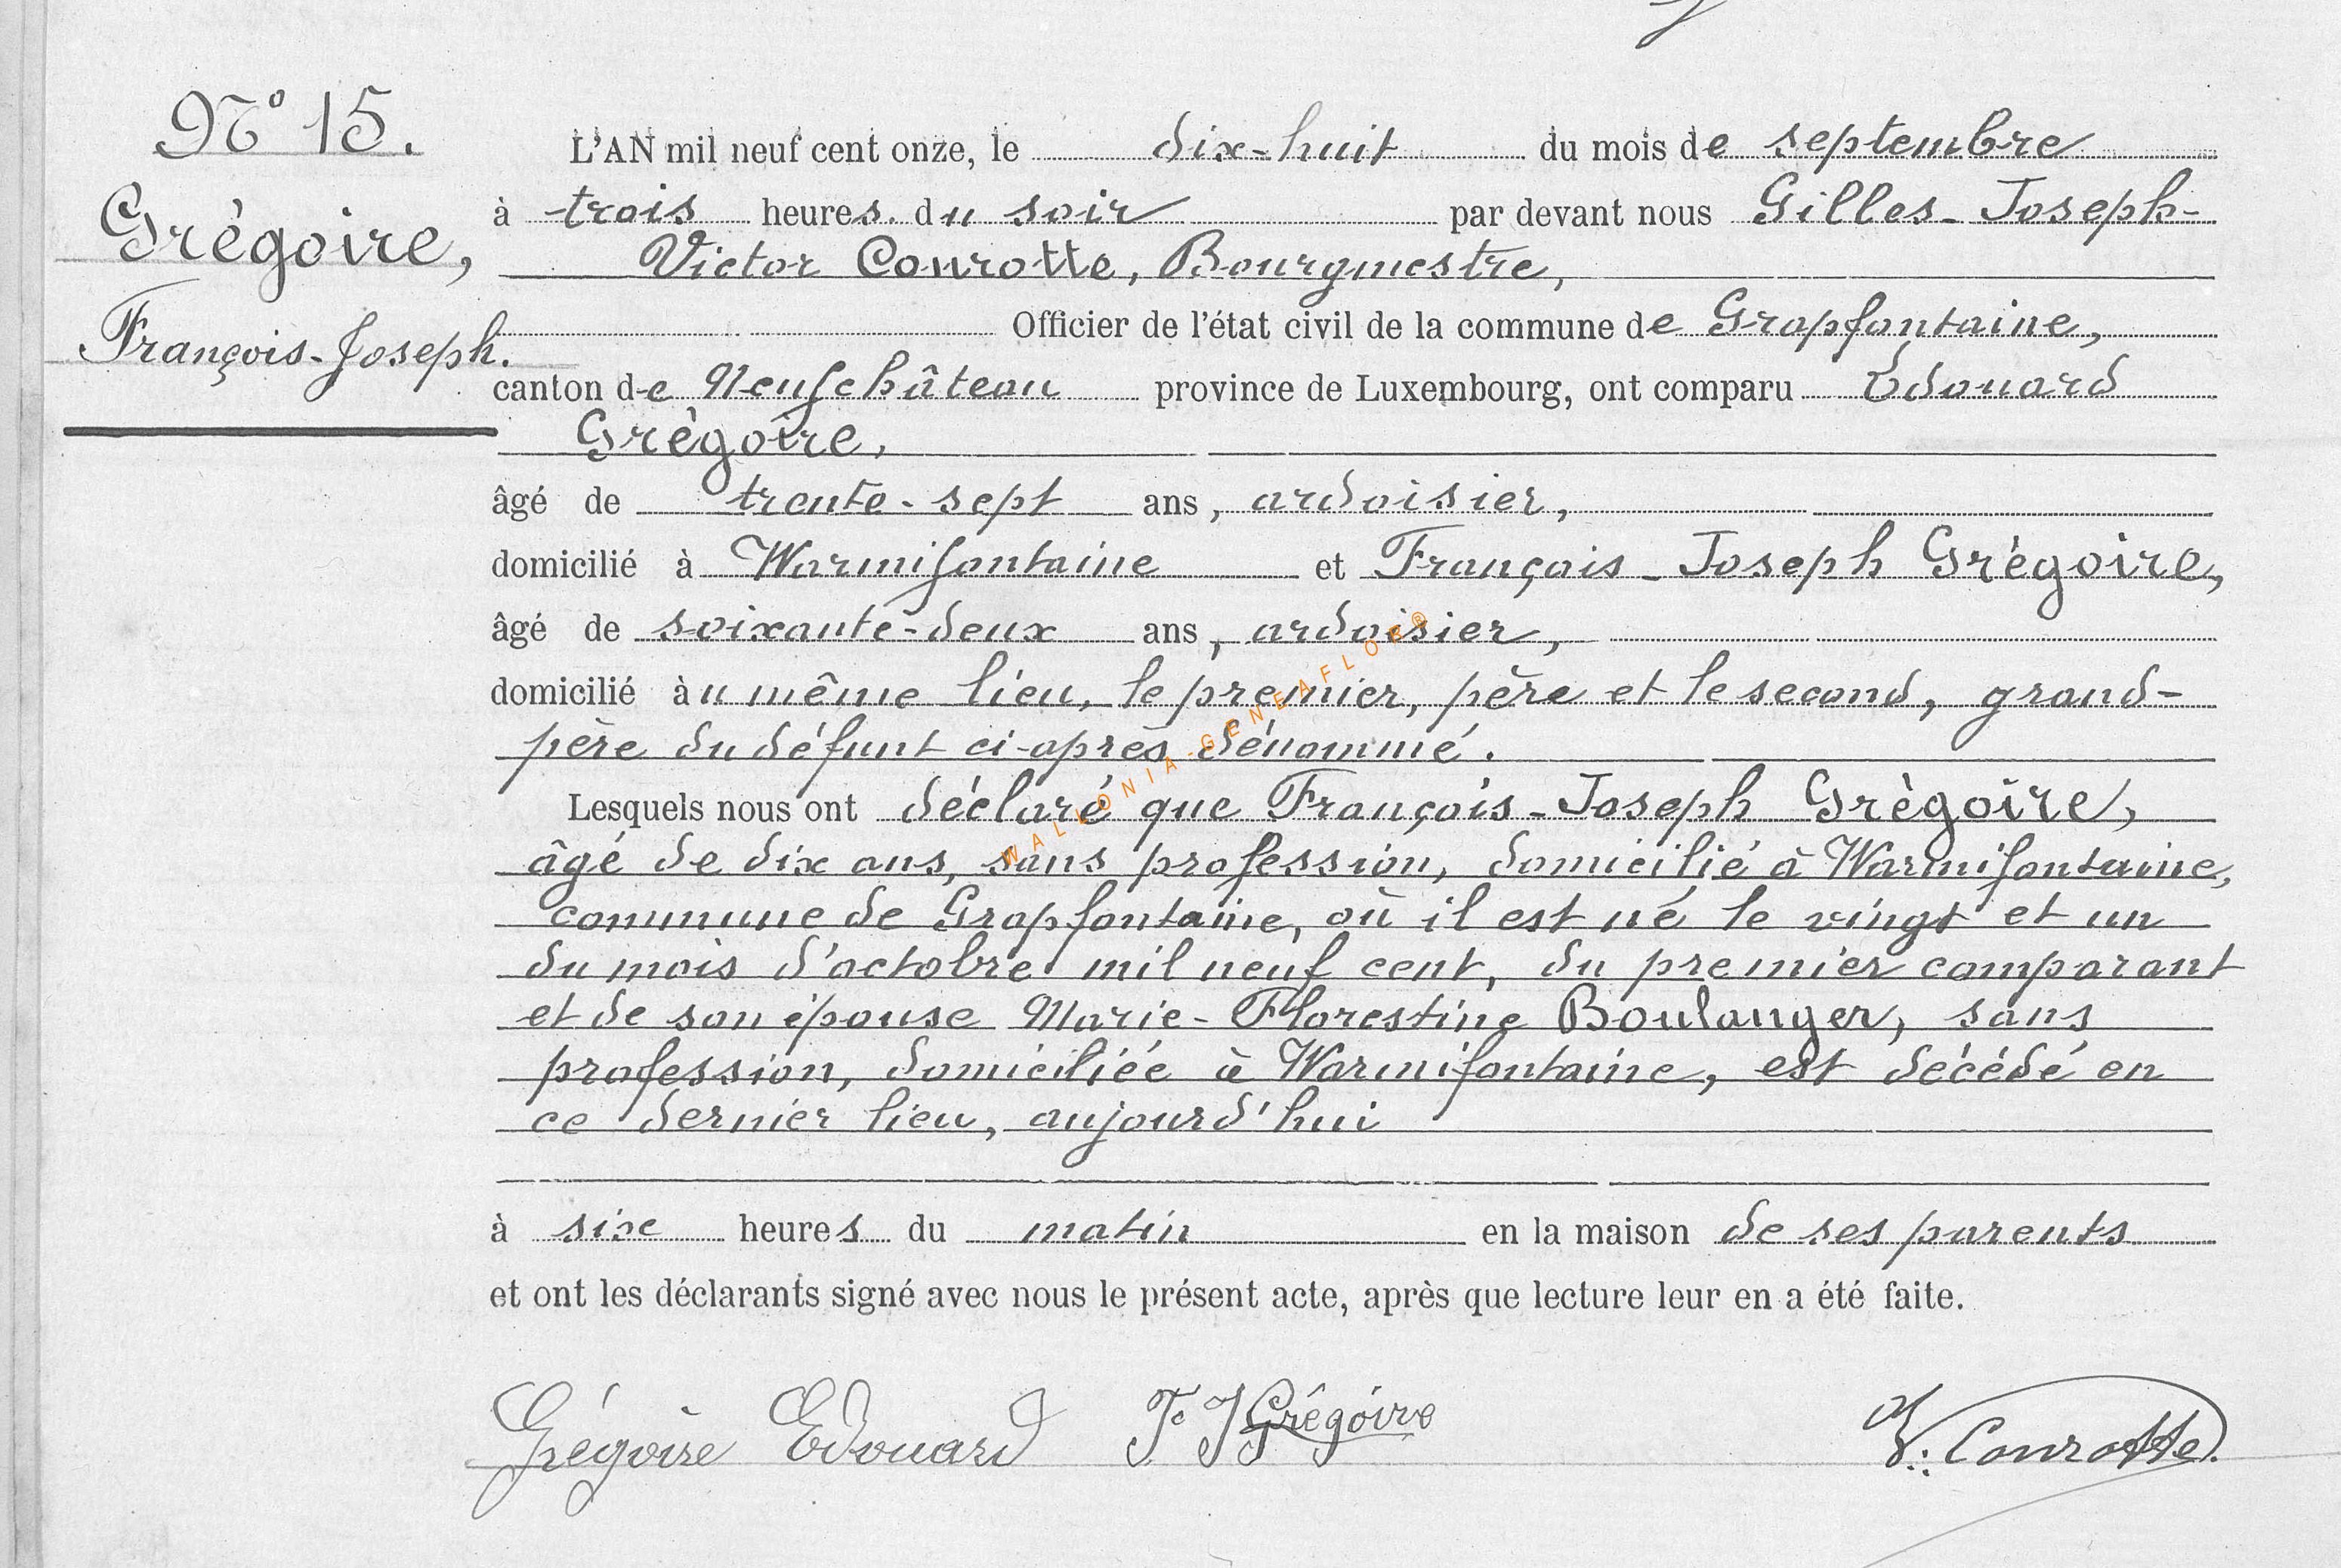 N° 15.
Grégoire,
François-Joseph.
L'AN mil neuf cent onze, le dix-huit du mois de septembre
à trois heures du soir par devant nous Gilles-Joseph-
Victor Conrotte, Bourgmestre,
Officier de l'état civil de la commune de Grapfontaine,
canton de Neufchâteau province de Luxembourg, ont comparu Edouard
Grégoire,
âgé de trente-sept ans, ardoisier,
domicilié à Warmifontaine et François-Joseph Grégoire,
âgé de soixante-deux ans, ardoisier,
domicilié au même lieu, le premier, père et le second, grand-
père du défunt ci-après dénommé.
Lesquels nous ont déclaré que François-Joseph Grégoire,
âgé de dix ans, sans profession, domicilié à Warmifontaine,
commune de Grapfontaine, où il est né le vingt et un
du mois d'octobre mil neuf cent, du premier comparant
et de son épouse Marie-Florestine Boulanger, sans
profession, domiciliée à Warmifontaine, est décédé en
ce dernier lieu, aujourd'hui
à six heures du matin en la maison de ses parents
et ont les déclarants signé avec nous le présent acte, après que lecture leur en a été faite.
Grégoire Edouard F J Grégoire V. Conrotte
WALLONIA-GENEAFLOR®